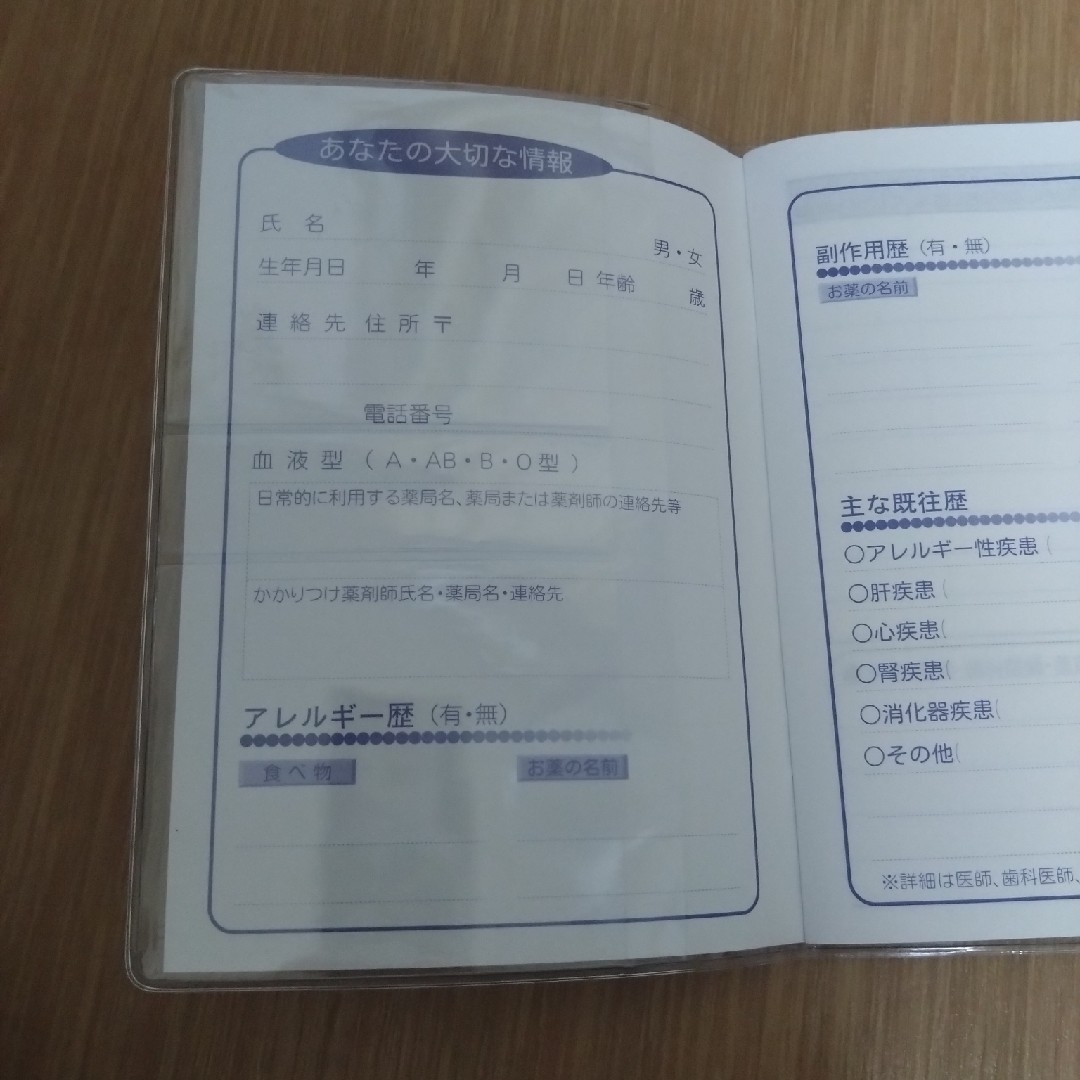 あなたの大切な情報
氏 名
男・女
生年月日 年 月 日 年齢 歳
連 絡 先 住 所 〒
電話番号
血 液 型 ( A・AB・B・O型 )
日常的に利用する薬局名、薬局または薬剤師の連絡先等
かかりつけ薬剤師氏名・薬局名・連絡先
アレルギー歴 (有・無)
食べ物 お薬の名前
副作用歴 (有・無)
お薬の名前
主な既往歴
○アレルギー性疾患(
○肝疾患(
○心疾患(
○腎疾患(
○消化器疾患(
○その他(
※詳細は医師、歯科医師、